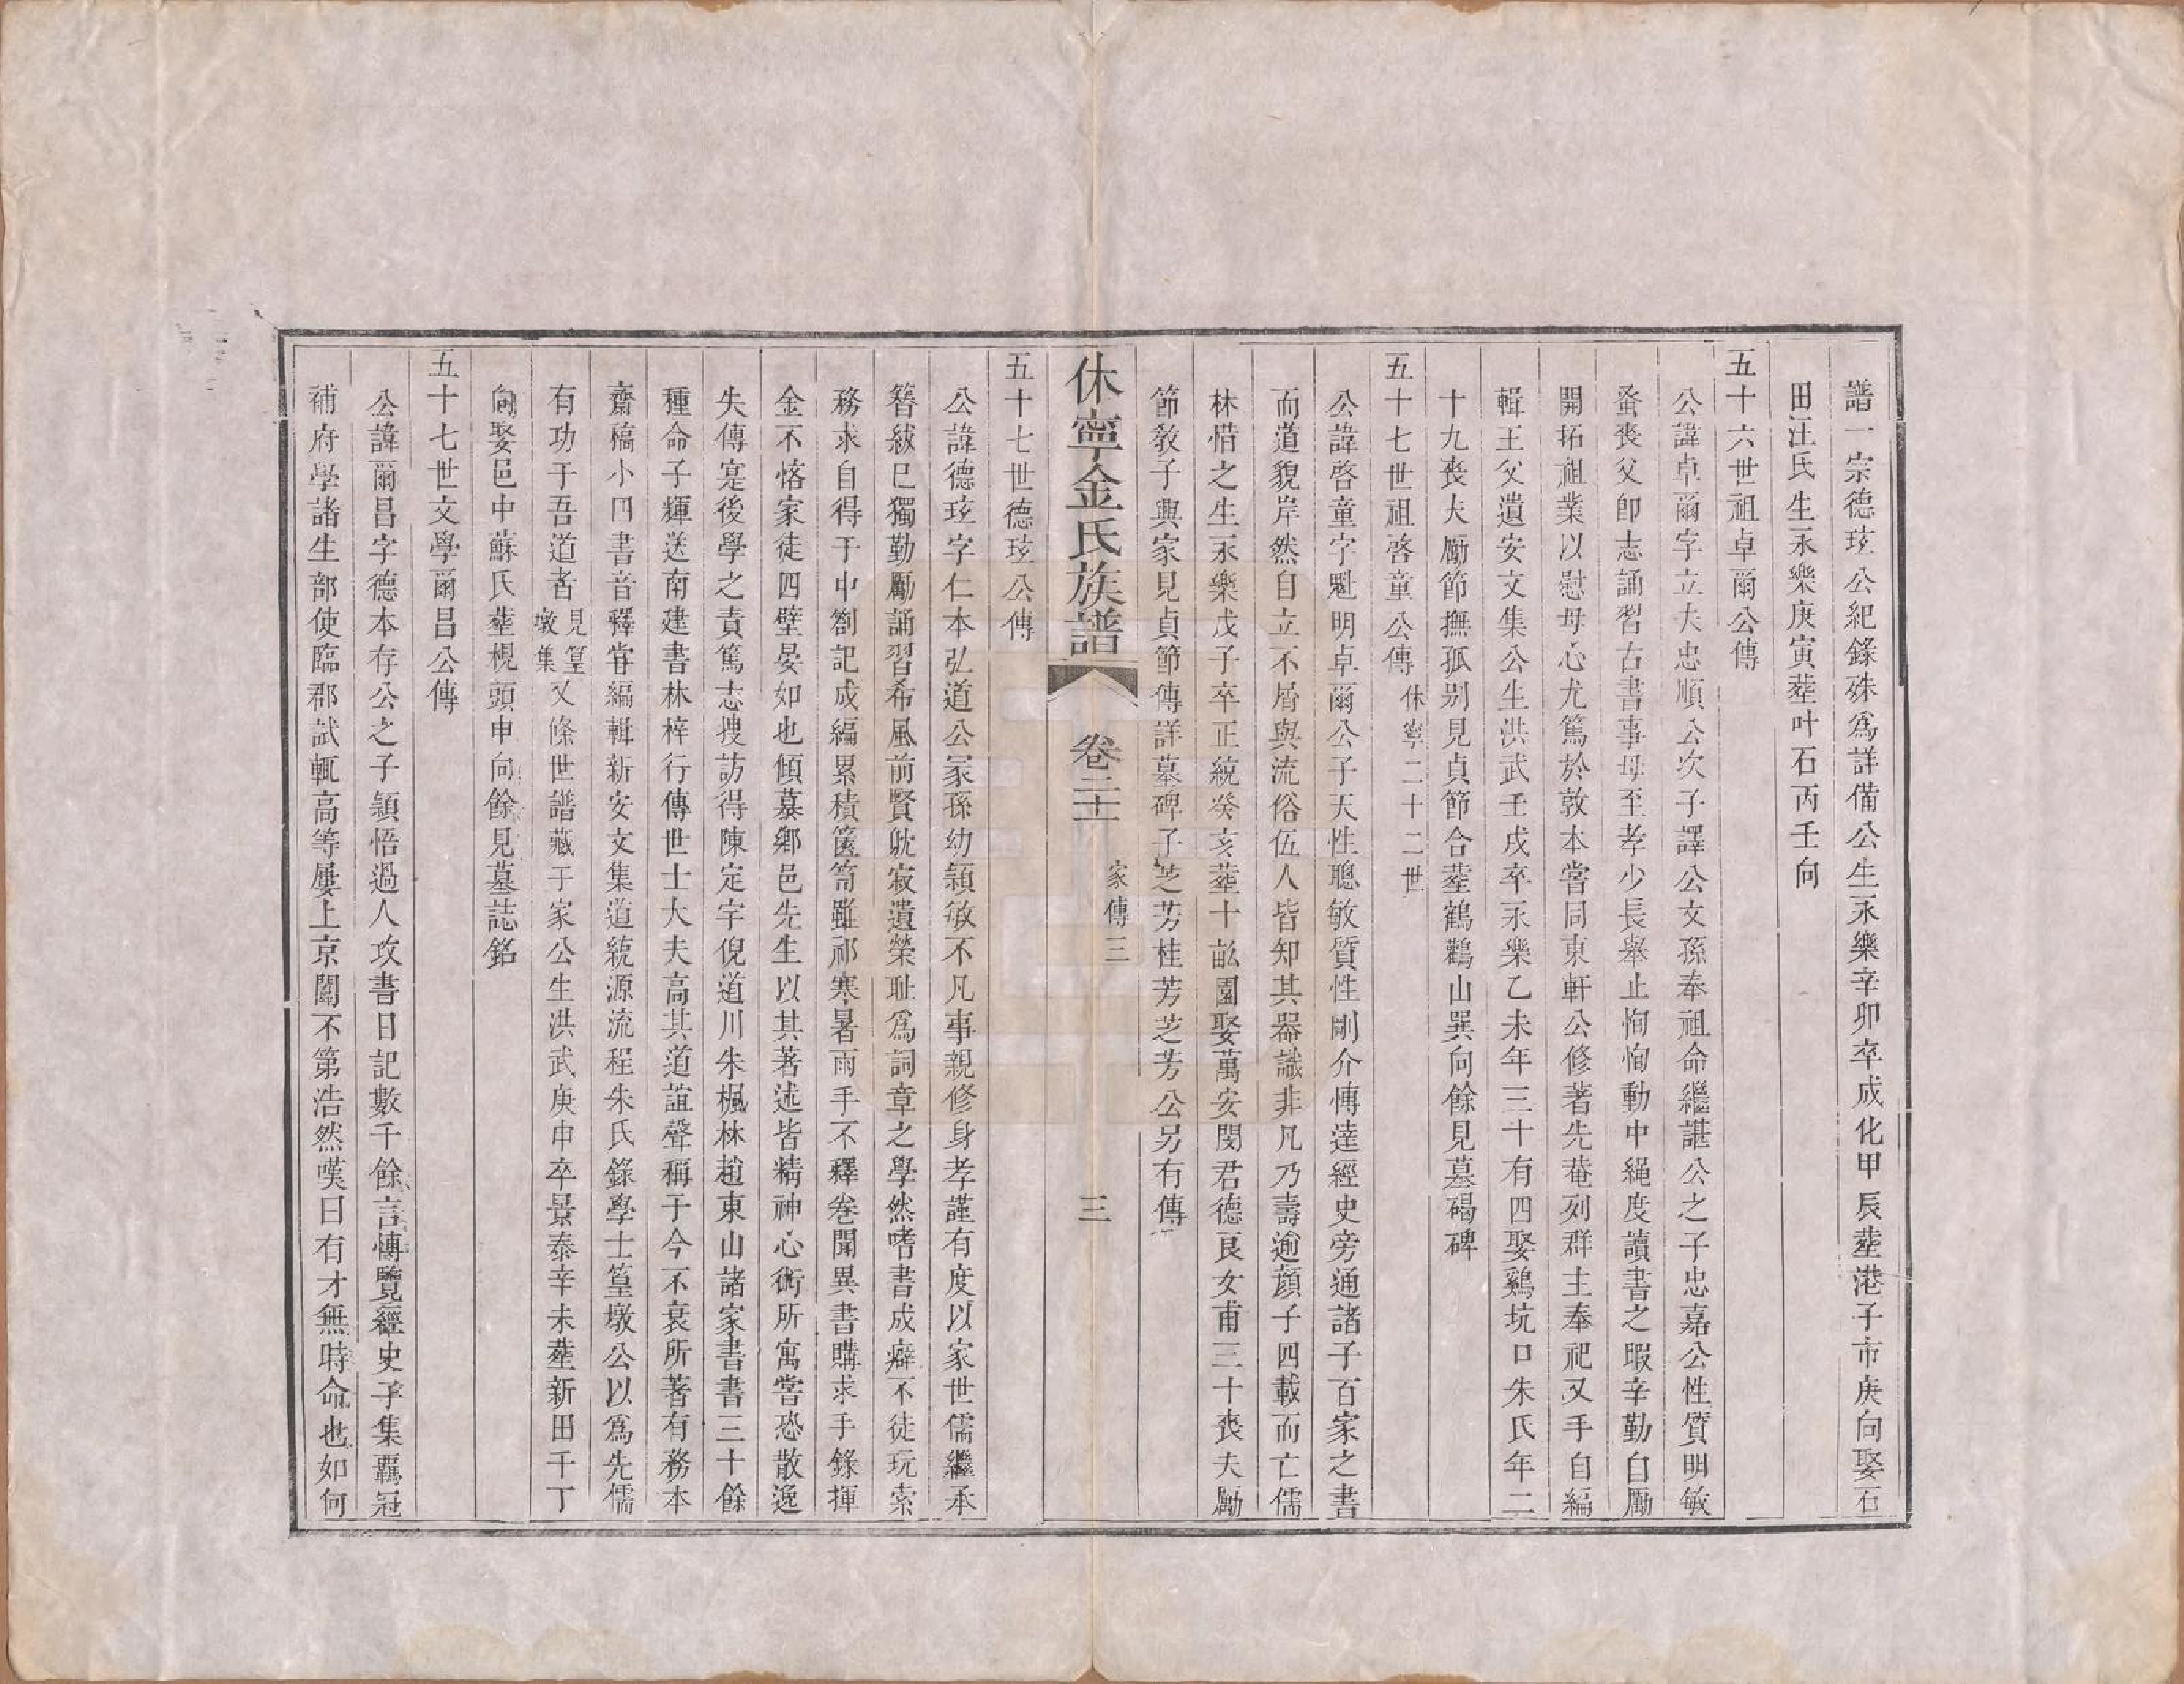 譜一宗德玹公紀錄殊爲詳備公生永樂辛卯卒成化甲辰塟港子市庚向娶石
田汪氏生永樂庚寅塟叶石丙壬向
五十六世祖卓爾公傳
公諱卓爾字立夫忠順公次子譯公文孫奉祖命繼諶公之子忠嘉公性質明敏
蚤喪父卽志誦習古書事母至孝少長舉止恂恂動中繩度讀書之暇辛勤自勵
開拓祖業以慰母心尤篤於敦本嘗同東軒公修著先菴列群主奉祀又手自編
輯王父遺安文集公生洪武壬戌卒永樂乙未年三十有四娶鷄坑口朱氏年二
十九喪夫勵節撫孤别見貞節合塟鶴鸛山巽向餘見墓碣碑
五十七世祖啓童公傳 休寧二十二世
公諱啓童字魁明卓爾公子天性聰敏質性剛介慱達經史旁通諸子百家之書
而道貌岸然自立不屑與流俗伍人皆知其器識非凡乃壽逾顏子四載而亡儒
林惜之生永樂戊子卒正統癸亥塟十畝園娶萬安閔君德良女甫三十喪夫勵
節敎子興家見貞節傳詳墓碑子芝芳桂芳芝芳公另有傳
休寧金氏族譜 卷二十一 家傳三 三
五十七世德玹公傳
公諱德玹字仁本弘道公冢孫幼穎敏不凡事親修身孝謹有度以家世儒繼承
簪紱巳獨勤勵誦習希風前賢躭寂遺榮耻爲詞章之學然嗜書成癖不徒玩索
務求自得于中劄記成編累積篋笥雖祁寒暑雨手不釋卷聞異書購求手錄揮
金不悋家徒四壁晏如也傾慕鄉邑先生以其著述皆精神心術所寓嘗恐散逸
失傳寔後學之責篤志搜訪得陳定宇倪道川朱楓林趙東山諸家書書三十餘
種命子輝送南建書林梓行傳世士大夫高其道誼聲稱于今不衰所著有務本
齋稿小四書音釋甞編輯新安文集道統源流程朱氏錄學士篁墩公以爲先儒
有功于吾道者見篁墩集又條世譜藏于家公生洪武庚申卒景泰辛未塟新田千丁
向娶邑中蘇氏塟梘頭申向餘見墓誌銘
五十七世文學爾昌公傳
公諱爾昌字德本存公之子穎悟過人攻書日記數千餘言慱覽經史子集覊冠
補府學諸生部使臨郡試輒高等屢上京闈不第浩然嘆曰有才無時命也如何